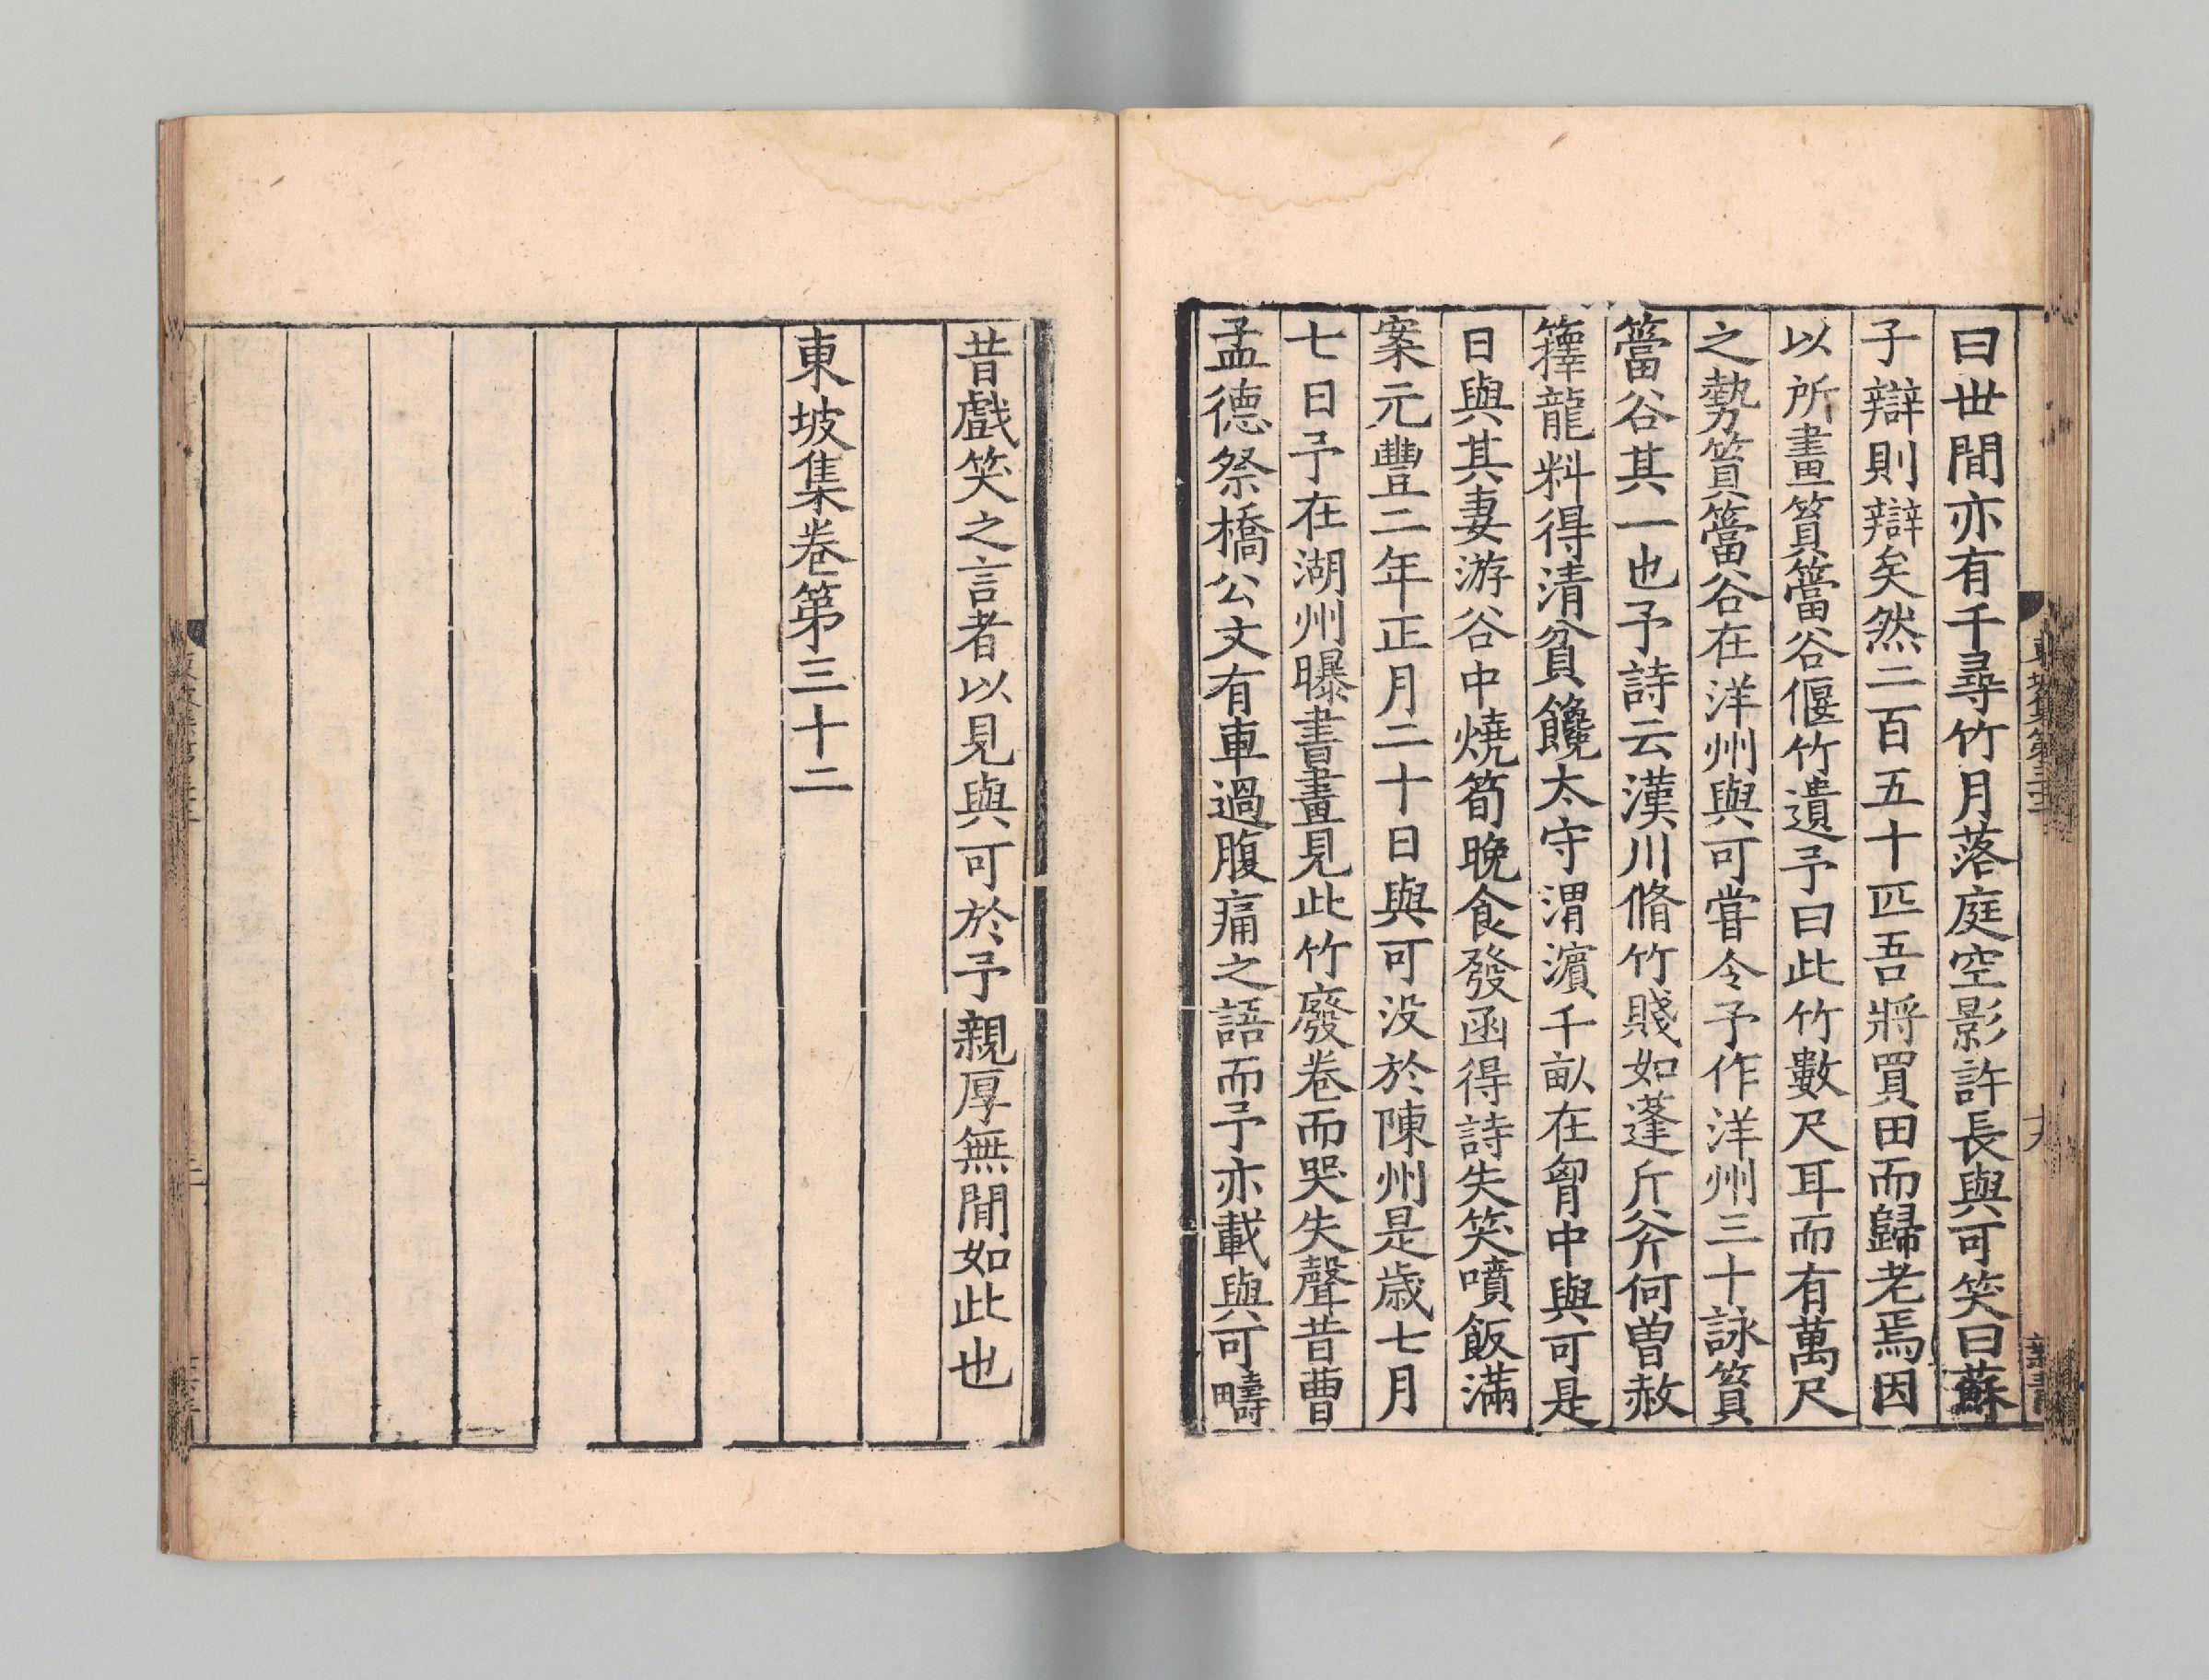 曰世間亦有千尋竹月落庭空影許長與可笑曰蘇
子辯則辯矣然二百五十匹吾將買田而歸老焉因
以所畫篔簹谷偃竹遺予曰此竹數尺耳而有萬尺
之勢篔簹谷在洋州與可嘗令予作洋州三十詠篔
簹谷其一也予詩云漢川脩竹賤如蓬斤斧何曽赦
籜龍料得清貧饞太守渭濵千畝在胷中與可是
日與其妻游谷中燒筍晚食發函得詩失笑噴飯滿
案元豐二年正月二十日與可没於陳州是歳七月
七日予在湖州曝書畫見此竹廢卷而哭失聲昔曹
孟德祭橋公文有車過腹痛之語而予亦載與可疇
昔戲笑之言者以見與可於予親厚無間如此也
東坡集卷第三十二